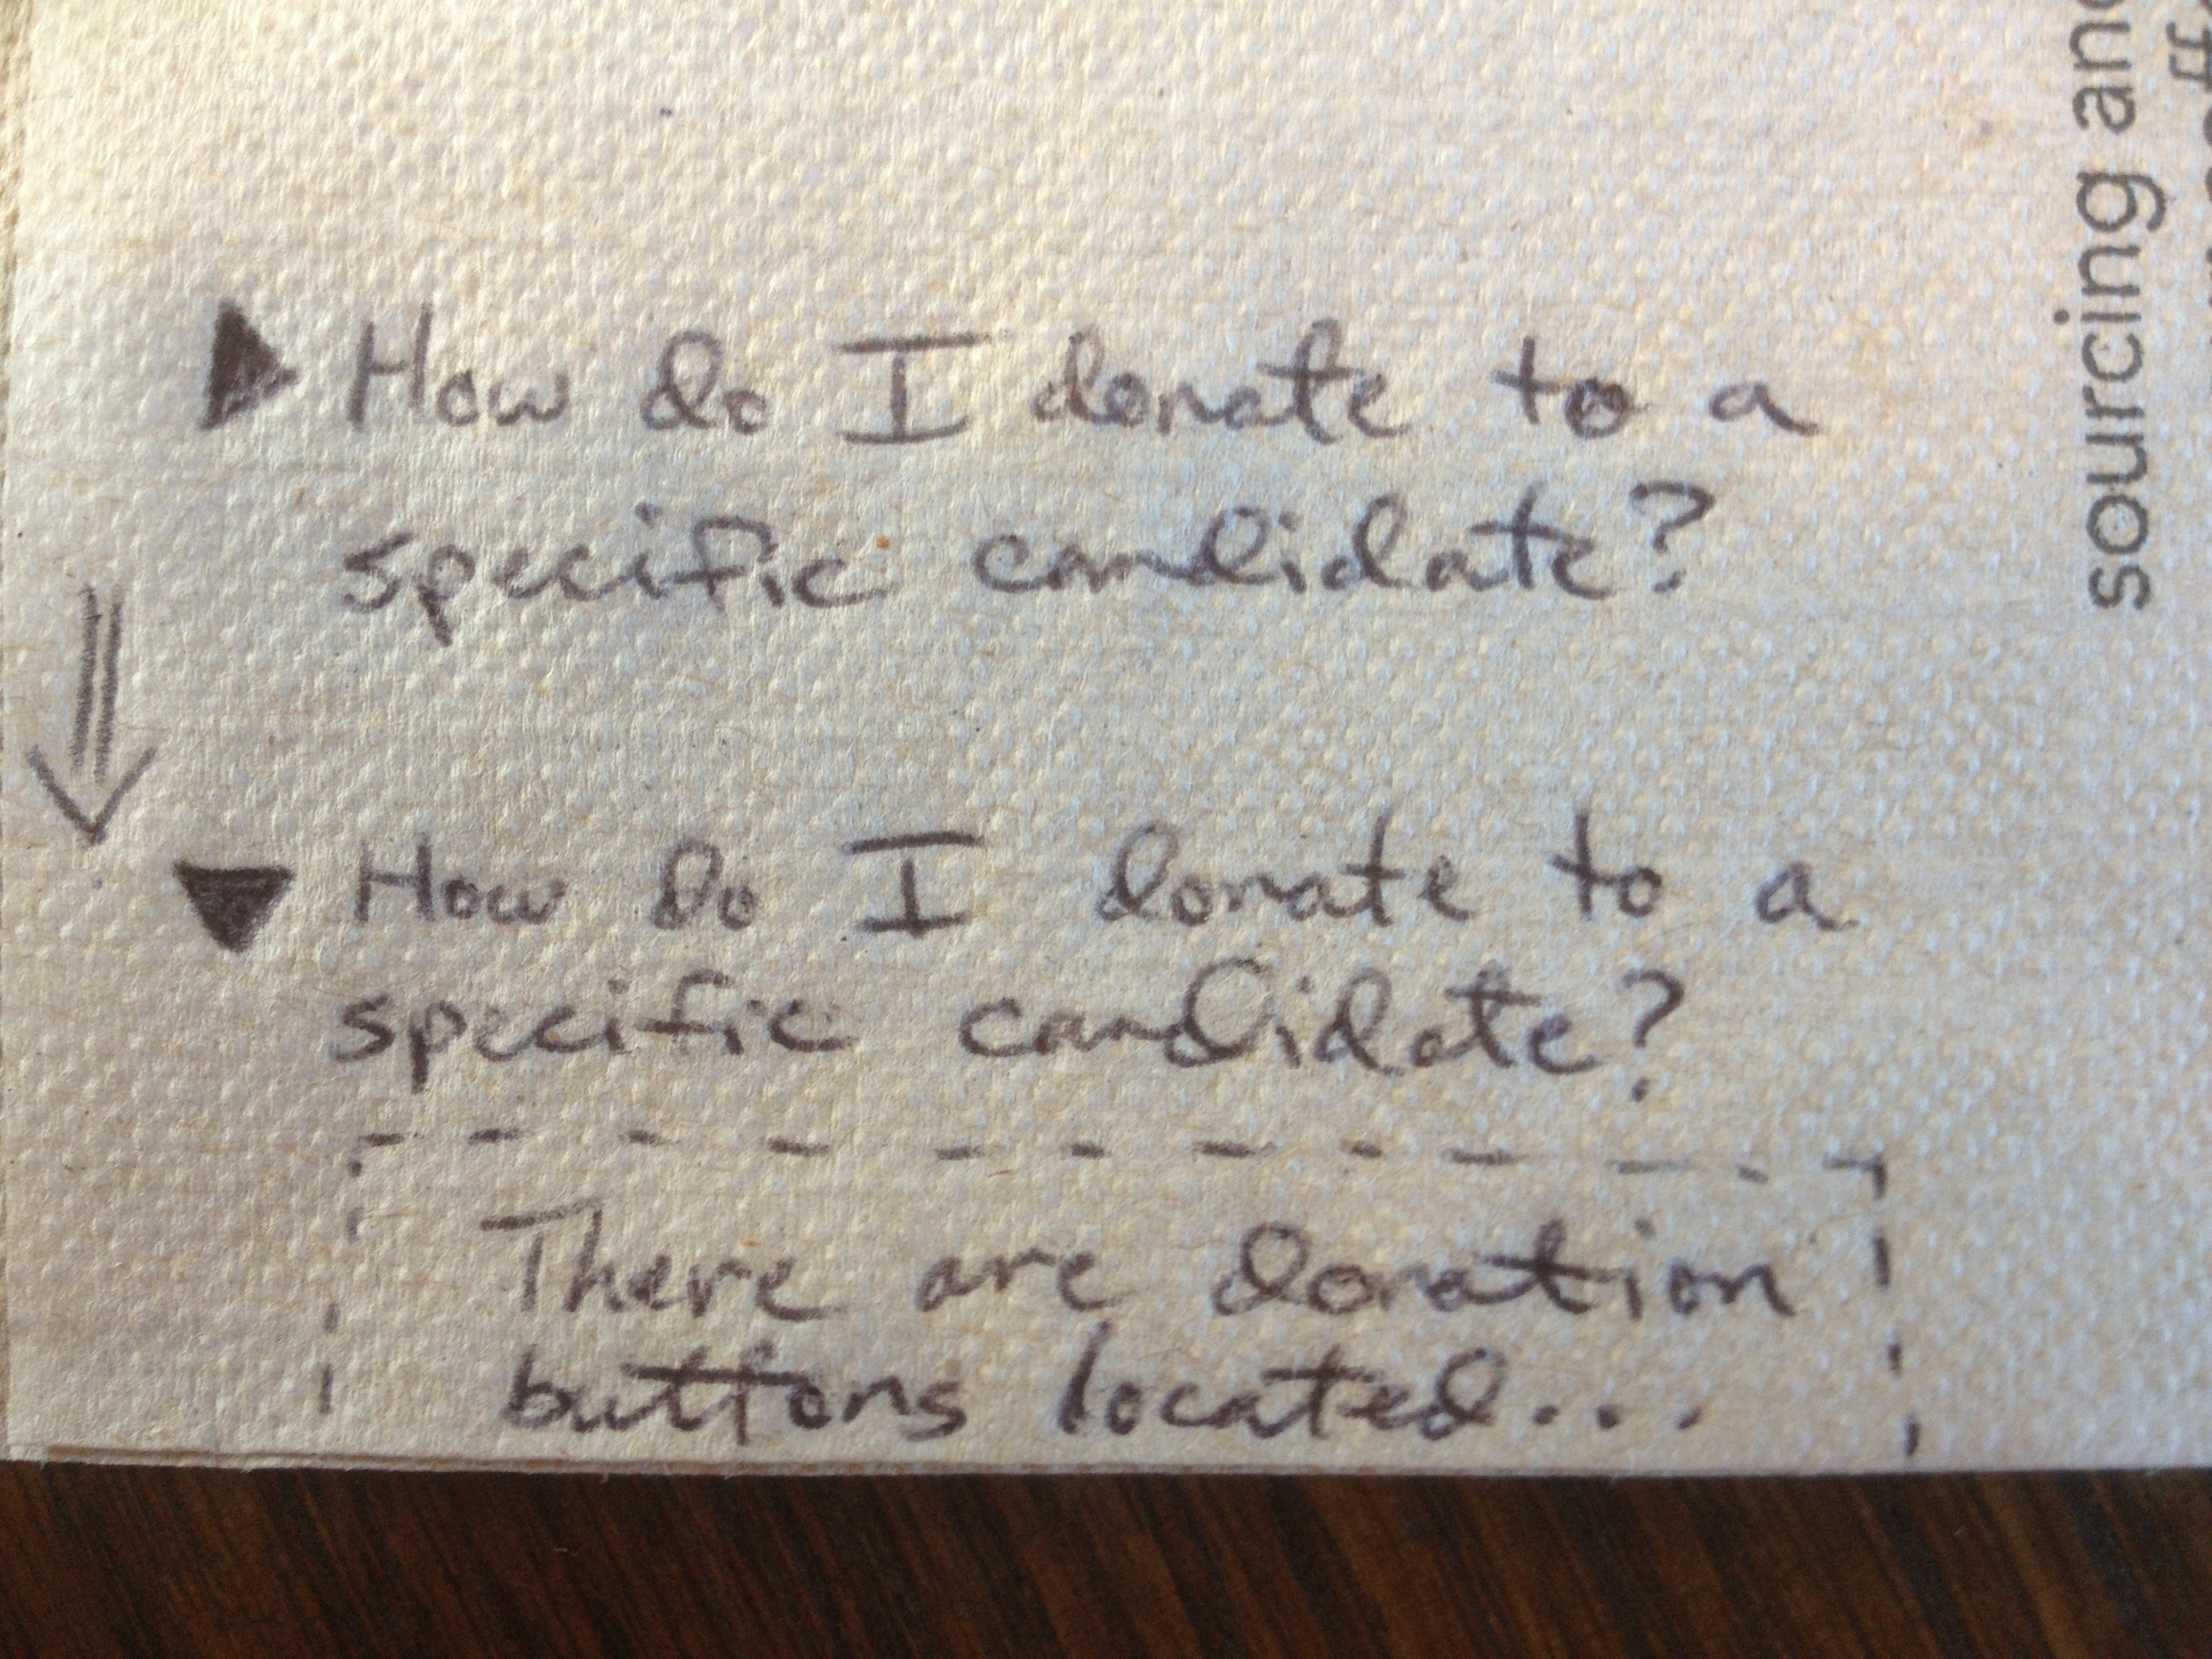 ▶ How do I donate to a
specific candidate?
▼ How do I donate to a
specific candidate?
There are donation
buttons located...
sourcing and